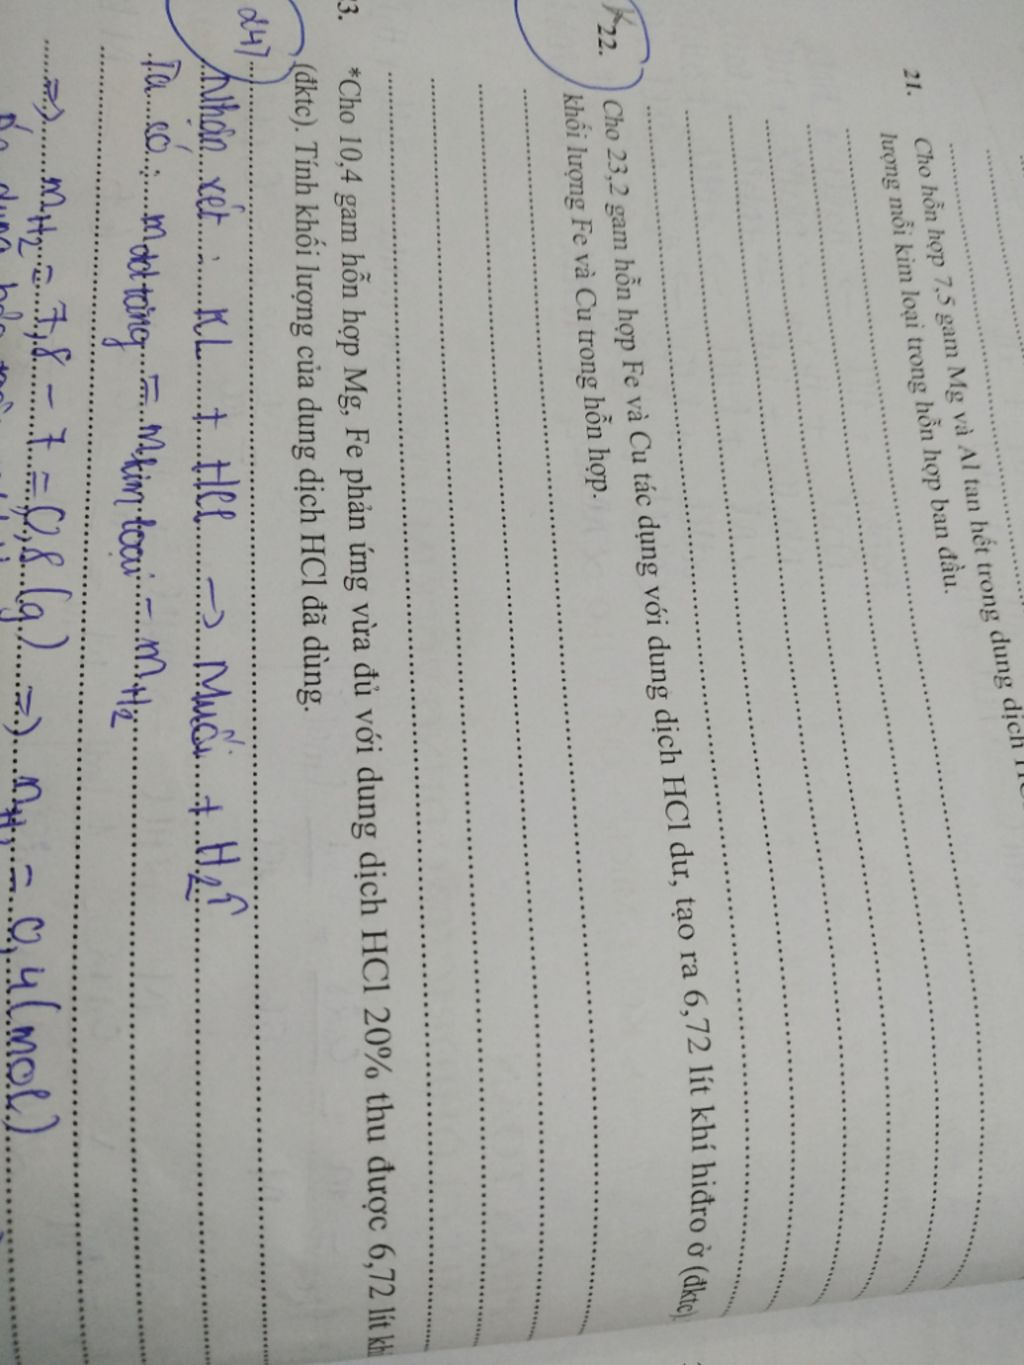 21. Cho hỗn hợp 7,5 gam Mg và Al tan hết trong dung dịch
lượng mỗi kim loại trong hỗn hợp ban đầu.
22. Cho 23,2 gam hỗn hợp Fe và Cu tác dụng với dung dịch HCl dư, tạo ra 6,72 lít khí hiđro ở (đktc)
khối lượng Fe và Cu trong hỗn hợp.
3. *Cho 10,4 gam hỗn hợp Mg, Fe phản ứng vừa đủ với dung dịch HCl 20% thu được 6,72 lít khí
(đktc). Tính khối lượng của dung dịch HCl đã dùng.
24) Nhận xét : KL + HCl -> Muối + H2↑
Ta có : mdd tăng = mkim loại - mH2
=> mH2 = 7,8 - 7 = 0,8 (g) => nH2 = 0,4 (mol)